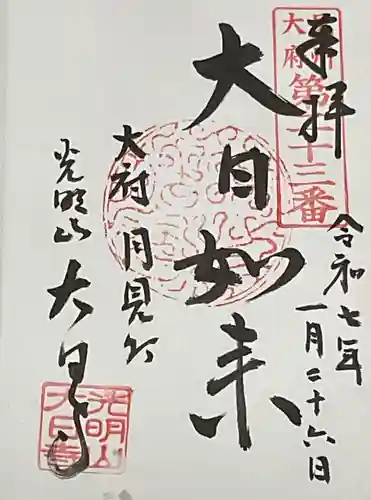 奉拝
第二十三番
令和七年
一月二十六日
大日如来
大府 月見ヶ
光明山 大日寺
光明山
大日寺